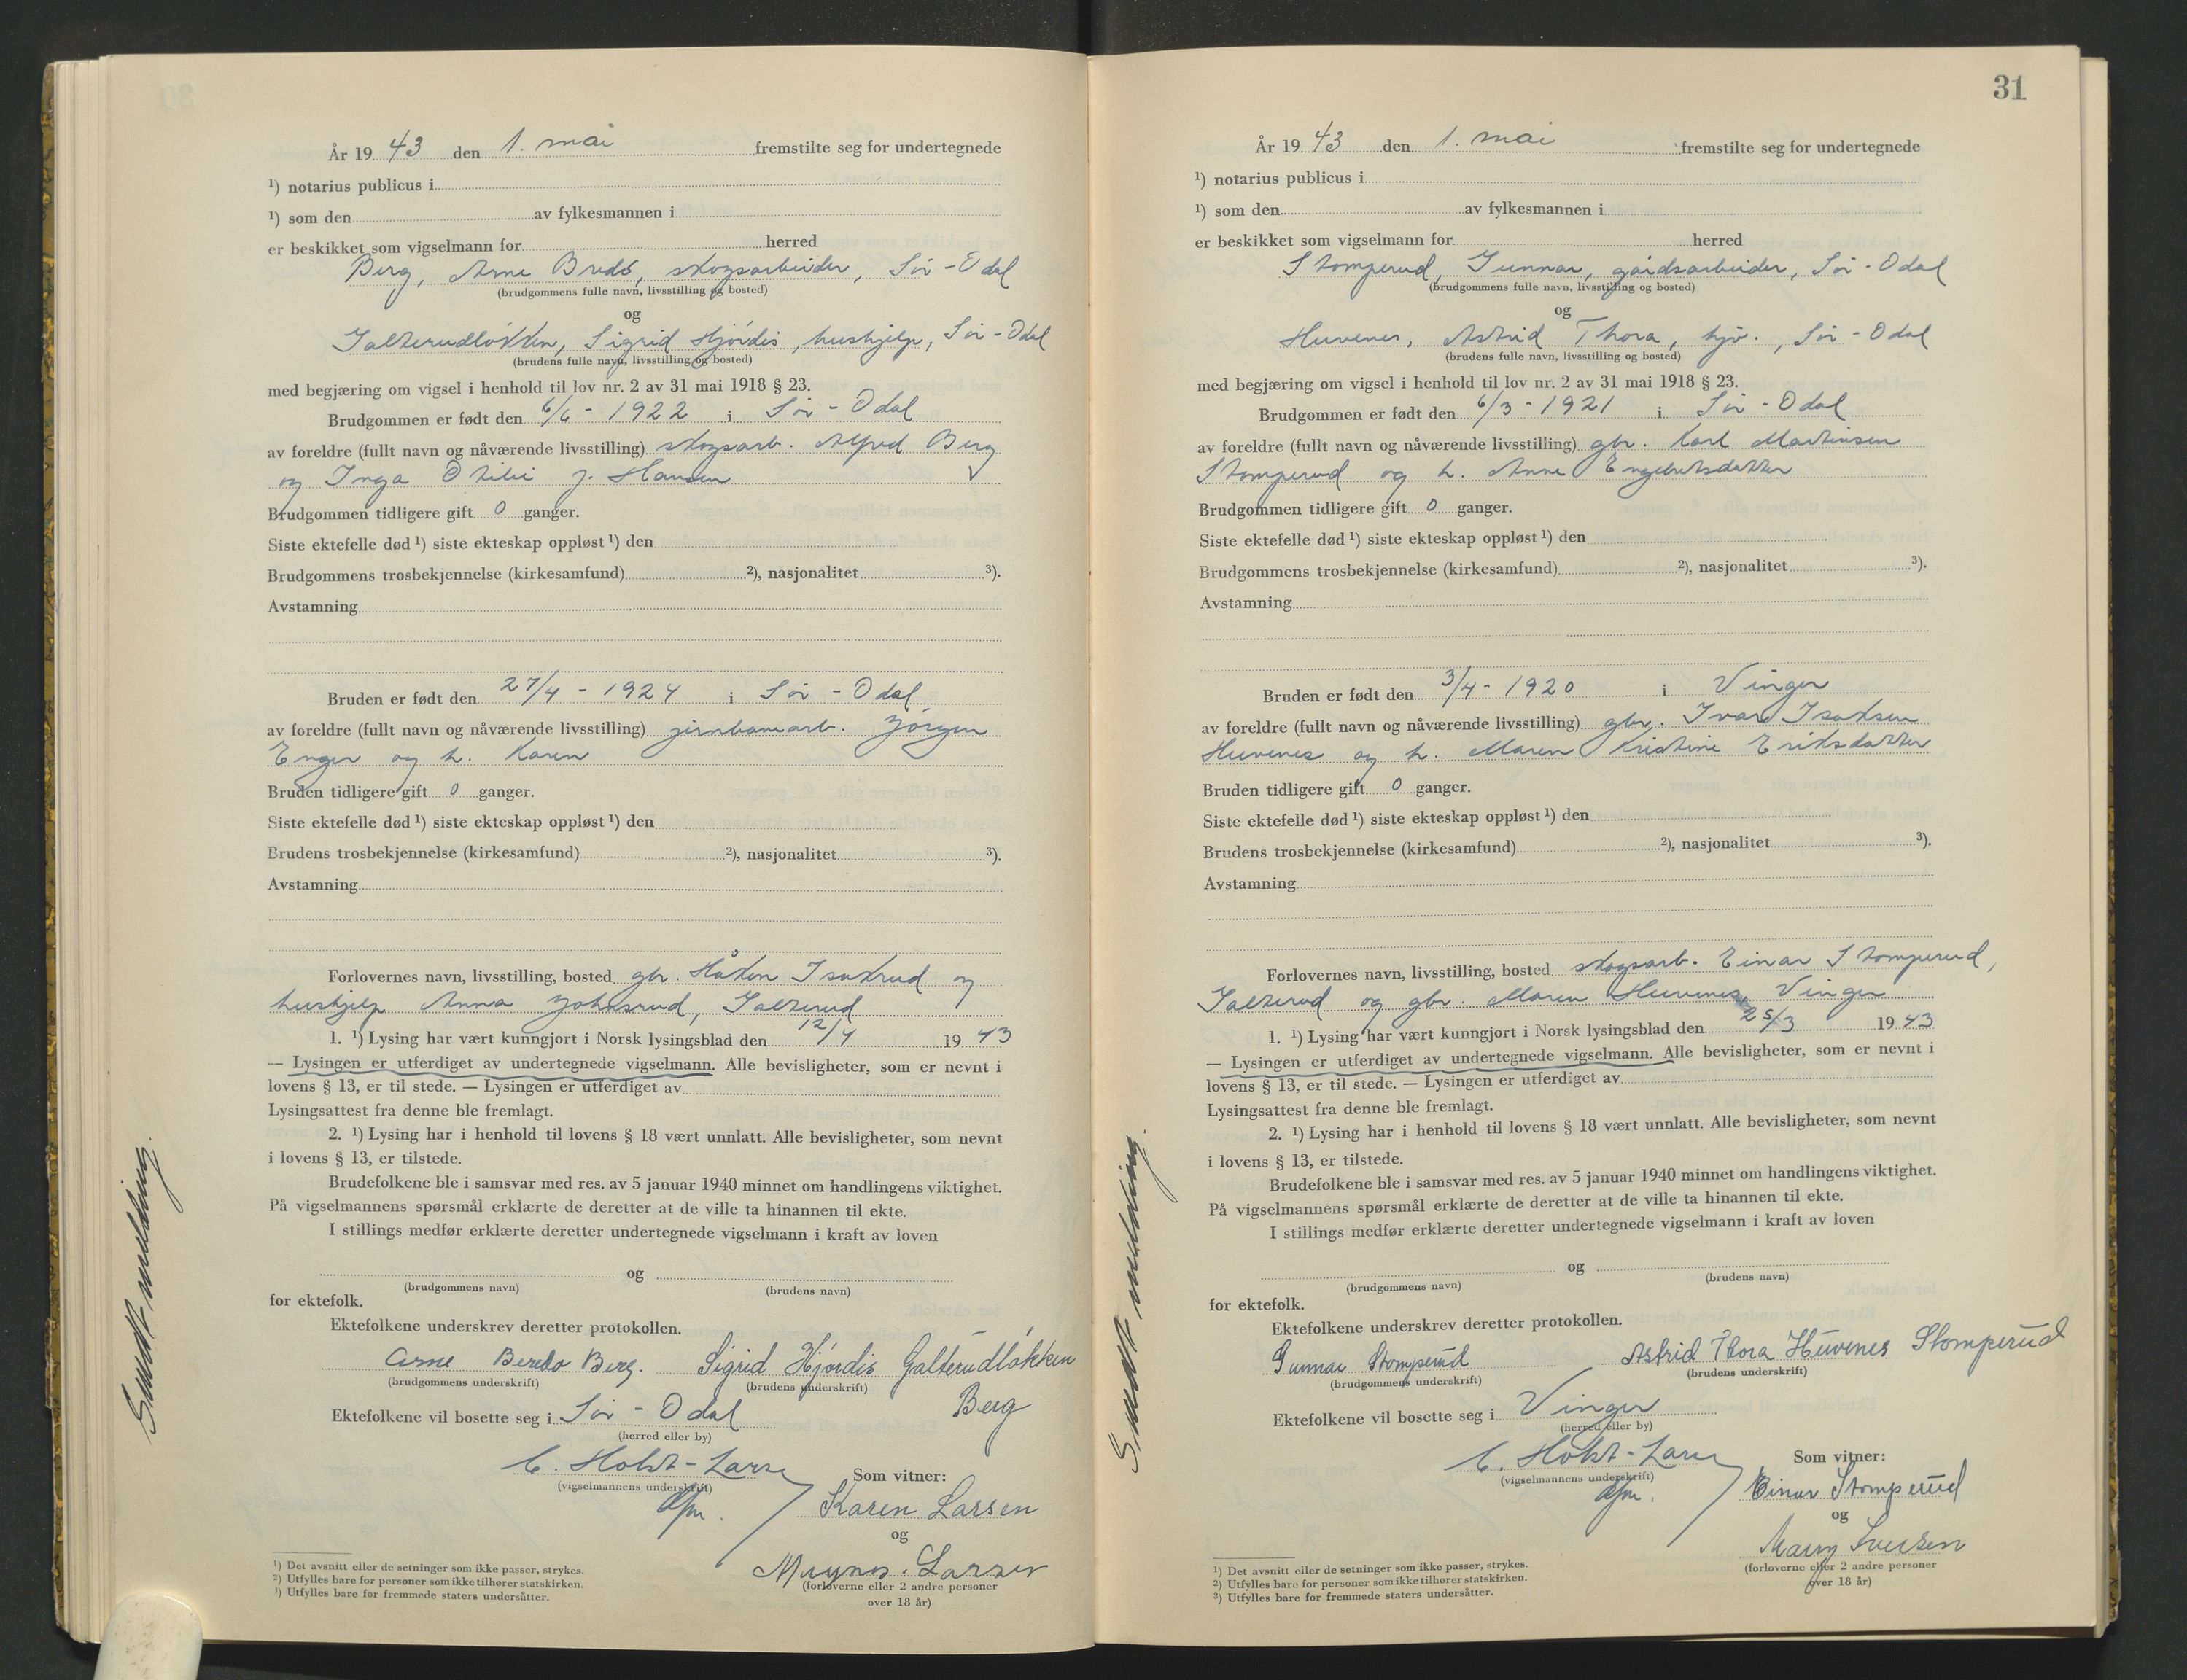 År 19 43 den 1. mai fremstilte seg for undertegnede
¹) notarius publicus i
¹) som den av fylkesmannen i
er beskikket som vigselmann for herred
Berg, Arne Bredo, skogsarbeider, Sør-Odal
(brudgommens fulle navn, livsstilling og bosted)
og
Galterudløkken, Sigrid Hjördis, hushjelp, Sør-Odal
(brudens fulle navn, livsstilling og bosted)
med begjæring om vigsel i henhold til lov nr. 2 av 31 mai 1918 § 23.
Brudgommen er født den 6/6 - 1922 i Sør - Odal
av foreldre (fullt navn og nåværende livsstilling) skogsarb. Alfred Berg
og Inga Otilie f. Hansen
Brudgommen tidligere gift 0 ganger.
Siste ektefelle død ¹) siste ekteskap oppløst ¹) den
Brudgommens trosbekjennelse (kirkesamfund) ²), nasjonalitet ³).
Avstamning
Bruden er født den 27/4 - 1924 i Sør - Odal
av foreldre (fullt navn og nåværende livsstilling) jernbanearb. Jörgen
Enger og h. Karen
Bruden tidligere gift 0 ganger.
Siste ektefelle død ¹) siste ekteskap oppløst ¹) den
Brudens trosbekjennelse (kirkesamfund) ²), nasjonalitet ³).
Avstamning
Forlovernes navn, livsstilling, bosted gbr. Håkon Isakrud og
hushjelp Anna Johnsrud, Galterud
1. ¹) Lysing har vært kunngjort i Norsk lysingsblad den 12/4 19 43
— Lysingen er utferdiget av undertegnede vigselmann. Alle bevisligheter, som er nevnt i
lovens § 13, er til stede. — Lysingen er utferdiget av
Lysingsattest fra denne ble fremlagt.
2. ¹) Lysing har i henhold til lovens § 18 vært unnlatt. Alle bevisligheter, som nevnt
i lovens § 13, er tilstede.
Brudefolkene ble i samsvar med res. av 5 januar 1940 minnet om handlingens viktighet.
På vigselmannens spørsmål erklærte de deretter at de ville ta hinannen til ekte.
I stillings medfør erklærte deretter undertegnede vigselmann i kraft av loven
og
(brudgommens navn) (brudens navn)
for ektefolk.
Ektefolkene underskrev deretter protokollen.
Arne Bredo Berg. Sigrid Hjördis Galterudløkken
(brudgommens underskrift) (brudens underskrift)
Berg
Ektefolkene vil bosette seg i Sør - Odal
(herred eller by)
C. Holst-Larsen
(vigselmannens underskrift)
Som vitner:
Karen Larsen
og
Magnos. Larsen
(forloverne eller 2 andre personer
over 18 år)
¹) Det avsnitt eller de setninger som ikke passer, strykes.
²) Utfylles bare for personer som ikke tilhører statskirken.
³) Utfylles bare for fremmede staters undersåtter.
Sendt melding.
31
År 19 43 den 1. mai fremstilte seg for undertegnede
¹) notarius publicus i
¹) som den av fylkesmannen i
er beskikket som vigselmann for herred
Stomperud, Gunnar, gårdsarbeider, Sør-Odal
(brudgommens fulle navn, livsstilling og bosted)
og
Huvenes, Astrid Thora, hjv., Sør-Odal
(brudens fulle navn, livsstilling og bosted)
med begjæring om vigsel i henhold til lov nr. 2 av 31 mai 1918 § 23.
Brudgommen er født den 6/3 - 1921 i Sør - Odal
av foreldre (fullt navn og nåværende livsstilling) gbr. Karl Martinsen
Stomperud og h. Anne Engebretsdatter
Brudgommen tidligere gift 0 ganger.
Siste ektefelle død ¹) siste ekteskap oppløst ¹) den
Brudgommens trosbekjennelse (kirkesamfund) ²), nasjonalitet ³).
Avstamning
Bruden er født den 3/4 - 1920 i Vinger
av foreldre (fullt navn og nåværende livsstilling) gbr. Ivar Isaksen
Huvenes og h. Maren Kristine Eriksdatter
Bruden tidligere gift 0 ganger.
Siste ektefelle død ¹) siste ekteskap oppløst ¹) den
Brudens trosbekjennelse (kirkesamfund) ²), nasjonalitet ³).
Avstamning
Forlovernes navn, livsstilling, bosted skogsarb. Einar Stomperud,
Galterud og gbr. Maren Huvenes, Vinger
1. ¹) Lysing har vært kunngjort i Norsk lysingsblad den 25/3 19 43
— Lysingen er utferdiget av undertegnede vigselmann. Alle bevisligheter, som er nevnt i
lovens § 13, er til stede. — Lysingen er utferdiget av
Lysingsattest fra denne ble fremlagt.
2. ¹) Lysing har i henhold til lovens § 18 vært unnlatt. Alle bevisligheter, som nevnt
i lovens § 13, er tilstede.
Brudefolkene ble i samsvar med res. av 5 januar 1940 minnet om handlingens viktighet.
På vigselmannens spørsmål erklærte de deretter at de ville ta hinannen til ekte.
I stillings medfør erklærte deretter undertegnede vigselmann i kraft av loven
og
(brudgommens navn) (brudens navn)
for ektefolk.
Ektefolkene underskrev deretter protokollen.
Gunnar Stomperud Astrid Thora Huvenes Stomperud
(brudgommens underskrift) (brudens underskrift)
Ektefolkene vil bosette seg i Vinger
(herred eller by)
C. Holst-Larsen
(vigselmannens underskrift)
Som vitner:
Einar Stomperud
og
Mary Iversen
(forloverne eller 2 andre personer
over 18 år)
¹) Det avsnitt eller de setninger som ikke passer, strykes.
²) Utfylles bare for personer som ikke tilhører statskirken.
³) Utfylles bare for fremmede staters undersåtter.
Sendt melding.